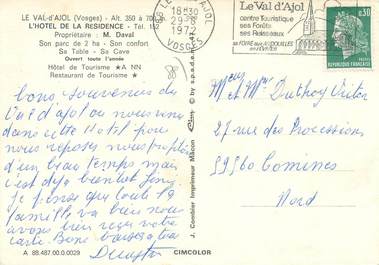 LE VAL-D'AJOL (Vosges) - Alt. 350 à 700
L'HOTEL DE LA RESIDENCE - Tél. 152
Propriétaire : M. Daval
Son parc de 2 ha - Son confort
Sa Table - Sa Cave
Ouvert toute l'année
Hôtel de Tourisme ★ A NN
Restaurant de Tourisme ★
Bons souvenirs du
Val d'ajol ou nous venons
dans cette Hotel pour
nous reposer nous profitons
d'un beau temps mais
c'est déjà bientôt fini
je pense que toute la
famille va bien nous
avons bien reçu votre
carte. Bons baisers a tous
A 88.487.00.0.0029
CIMCOLOR
J. Combier Imprimeur Mâcon
LE VAL D'AJOL
18H30
29-8
1972
VOSGES
Le Val d'Ajol
centre Touristique
ses Forêts
ses Ruisseaux
sa FOIRE aux ANDOUILLES
0,30
REPUBLIQUE FRANCAISE
POSTES
et Mme Duthoy Victor
27 rue des Processions
59560 Comines
Nord